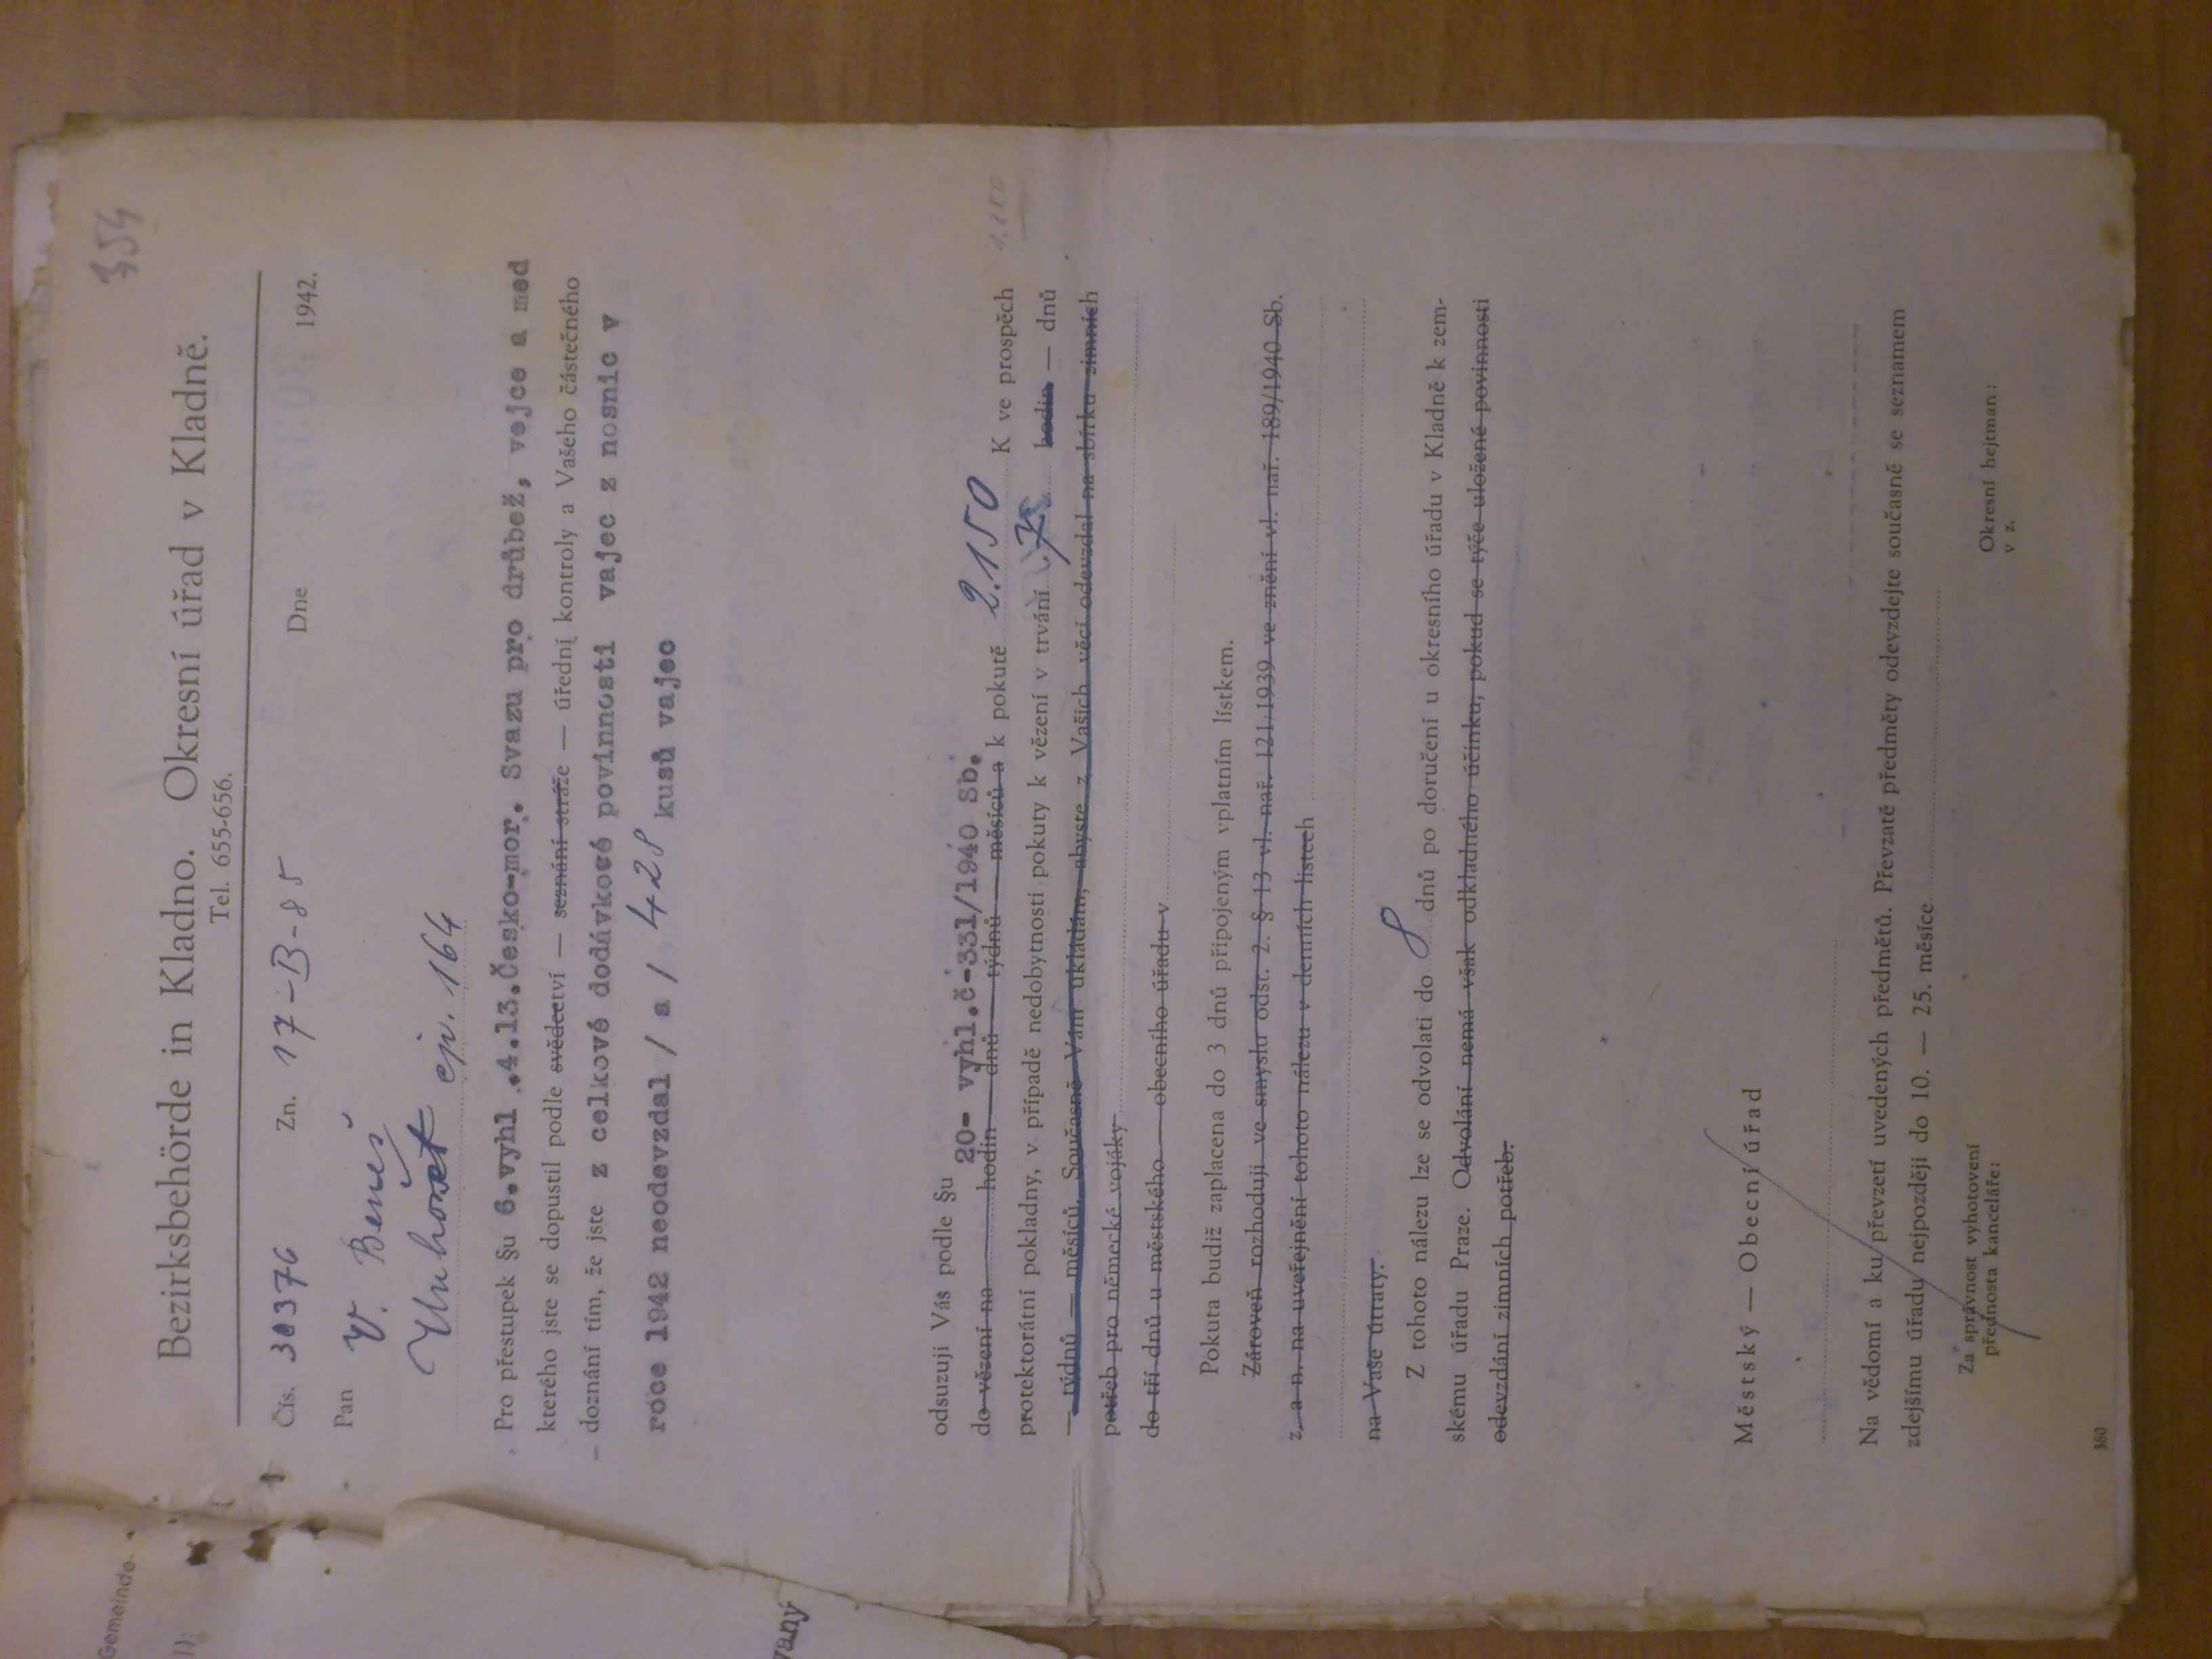 Gemeinde-
354
Bezirksbehörde in Kladno. Okresní úřad v Kladně.
Tel. 655-656.
Čís. 30376 Zn. 17-B-85 Dne 1942.
Pan V. Beneš
Unhošt čp. 164
Pro přestupek §u 6.vyhl .4.13.Česko-mor. Svazu pro drůbež, vejce a med
kterého jste se dopustil podle svědectví — seznání stráže — úřední kontroly a Vašeho částečného
doznání tím, že jste z celkové dodávkové povinnosti vajec z nosnic v
roce 1942 neodevzdal / a / 428 kusů vajec
vaný
odsuzuji Vás podle §u 20- vyhl.č-331/1940 Sb.
do vězení na hodin dnů týdnů — měsíců a k pokutě 2.150 K ve prospěch 1.850
protektorátní pokladny, v případě nedobytnosti pokuty k vězení v trvání 7 hodin — dnů
— týdnů — měsíců. Současně Vám ukládám, abyste z Vašich věcí odevzdal na sbírku zimních
potřeb pro německé vojáky
do tří dnů u městského — obecního úřadu v
Pokuta budiž zaplacena do 3 dnů připojeným vplatním lístkem.
Zároveň rozhoduji ve smyslu odst. 2. § 13 vl. nař. 121/1939 ve znění vl. nař. 189/1940 Sb.
z. a n. na uveřejnění tohoto nálezu v denních listech
na Vaše útraty.
Z tohoto nálezu lze se odvolati do 8 dnů po doručení u okresního úřadu v Kladně k zem-
skému úřadu Praze. Odvolání nemá však odkladného účinku, pokud se týče uložené povinnosti
odevzdání zimních potřeb.
Městský — Obecní úřad
Na vědomí a ku převzetí uvedených předmětů. Převzaté předměty odevzdejte současně se seznamem
zdejšímu úřadu nejpozději do 10. — 25. měsíce
Za správnost vyhotovení
přednosta kanceláře:
Okresní hejtman :
v z.
380